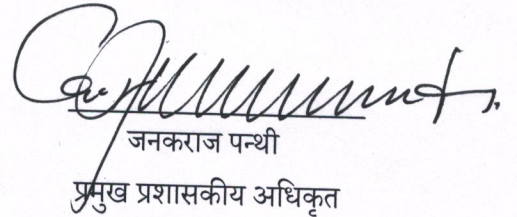 जनकराज पन्थी
प्रमुख प्रशासकीय अधिकृत